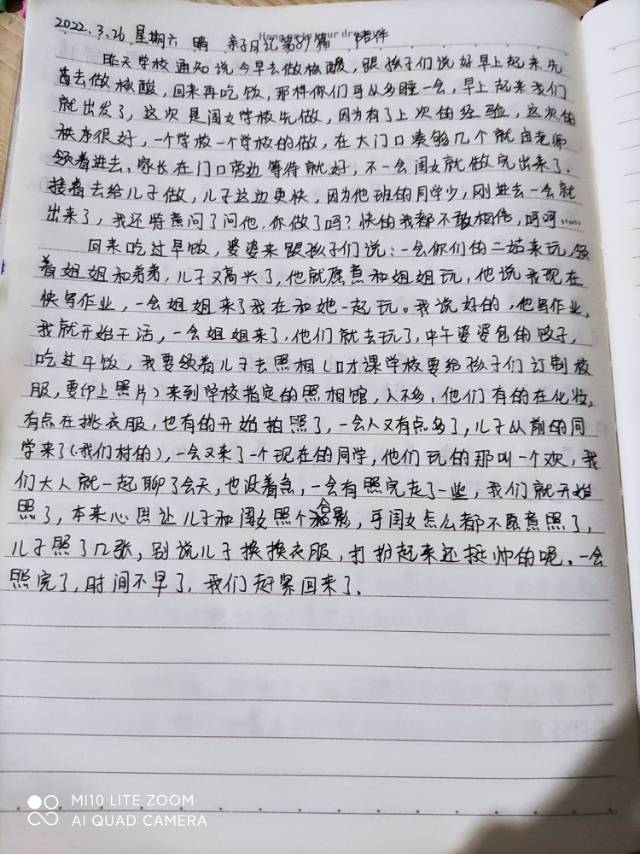 2022.3.26 星期六 晴 亲子日记第87篇 陪伴
昨天学校通知说今早去做核酸，跟孩子们说好早上起来先
去做核酸，回来再吃饭，那样你们可以多睡一会，早上起来我们
就出发了，这次是闺女学校先做，因为有了上次的经验，这次的
秩序很好，一个学校一个学校的做，在大门口凑够几个就由老师
领着进去，家长在门口旁边等待就好，不一会闺女就做完出来了，
接着去给儿子做，儿子这边更快，因为他班的同学少，刚进去一会就
出来了，我还特意问了问他，你做了吗？快的我都不敢相信，呵呵……
回来吃过早饭，婆婆来跟孩子们说：一会你们的二姑来玩，领
着姐姐和哥哥，儿子又高兴了，他就愿意和姐姐玩，他说我现在
快写作业，一会姐姐来了我在和她一起玩。我说好的，他写作业，
我就开始干活，一会姐姐来了，他们就去玩了，中午婆婆包的饺子，
吃过午饭，我要领着儿子去照相（口才课学校要给孩子们订制校
服，要印上照片）来到学校指定的照相馆，人不多，他们有的在化妆，
有点在挑衣服，也有的开始拍照了，一会人又有点多了，儿子从前的同
学来了（我们村的），一会又来了一个现在的同学，他们玩的那叫一个欢，我
们大人就一起聊了会天，也没着急，一会有照完走了一些，我们就开始
照了，本来心思让儿子和闺女照个合影，可闺女怎么都不愿意照了，
儿子照了几张，别说儿子换换衣服，打扮起来还挺帅的呢。一会
照完了，时间不早了，我们赶紧回来了。
MI 10 LITE ZOOM
AI QUAD CAMERA